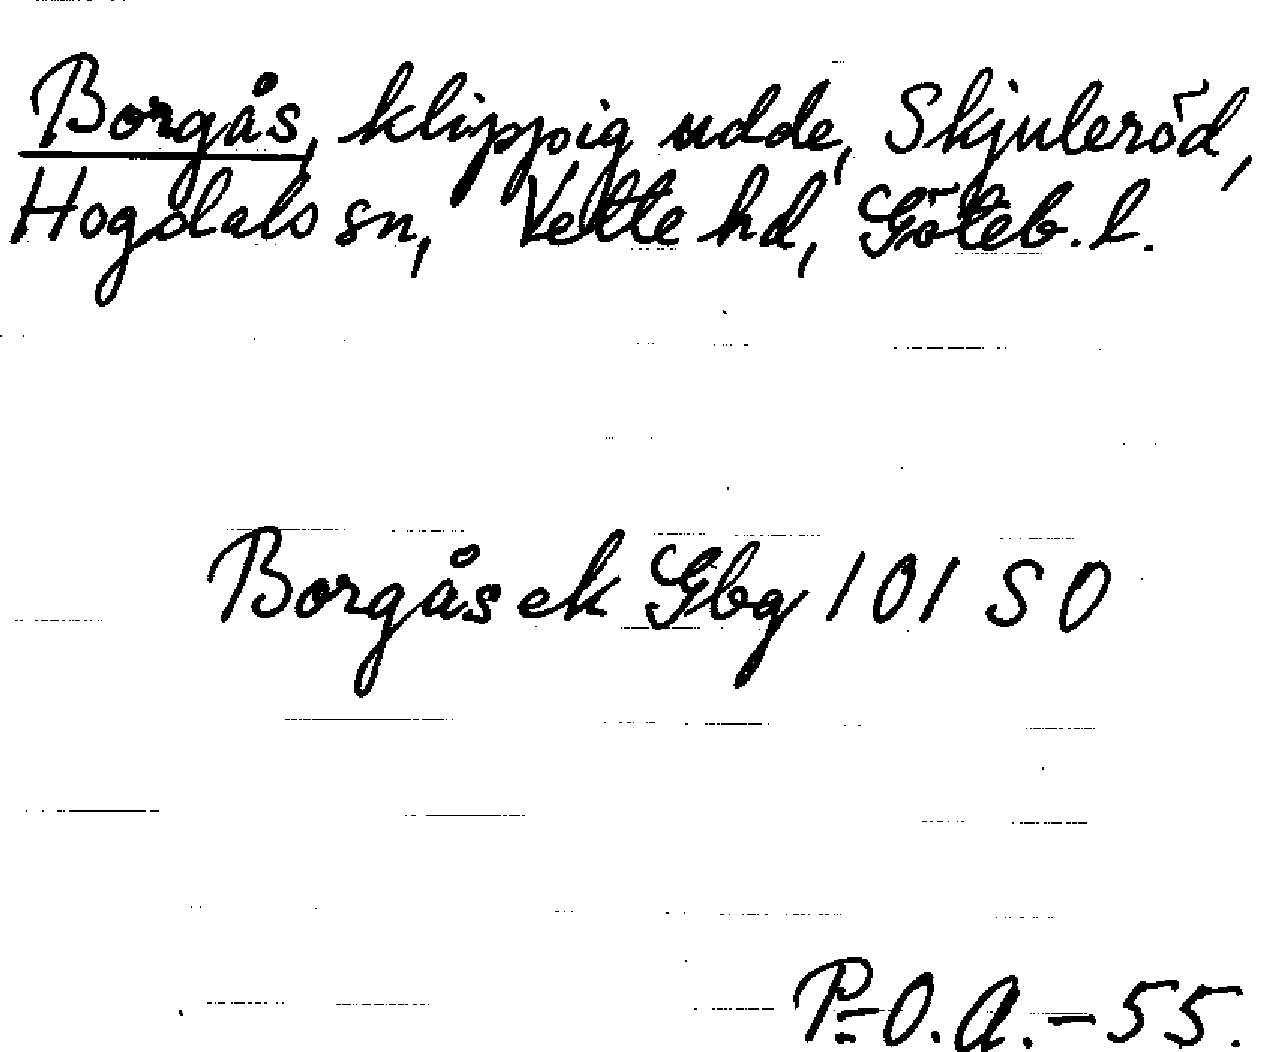 Borgås, klippig udde, Skjuleröd,
Hogdals sn, Vette hd, Göteb. l.
Borgås ek Gbg 101 SO
P.-O. A. - 55.